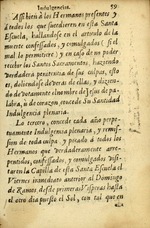 Indulgencias. 59
Assibien à los Hermanos presentes y
à todos los que sucedieren en esta Santa
Escuela, hallandose en el articulo de la
muerte confessados, y comulgados (si el
mal lo permitiere) y en caso de no poder
recebir los Santos Sacramentos, haziendo
verdadera penitencia de sus culpas, esto
es, doliendose de veras de ellas, y dizien-
do devotamente el nombre de Jesus de pa-
labra, ù de coraçon, concede Su Santidad
Indulgencia plenaria.
La tercera, concede cada año perpe-
tuamente Indulgencia plenaria, y remis-
sion de toda culpa, y pecado à todos los
Hermanos que verdaderamente arre-
pentidos, confessados, y comulgados visi-
taren la Capilla de esta Santa Escuela el
Viernes inmediato anterior al Domingo
de Ramos, desde primeras Visperas hasta
el otro dia puesto el Sol, con tal que en